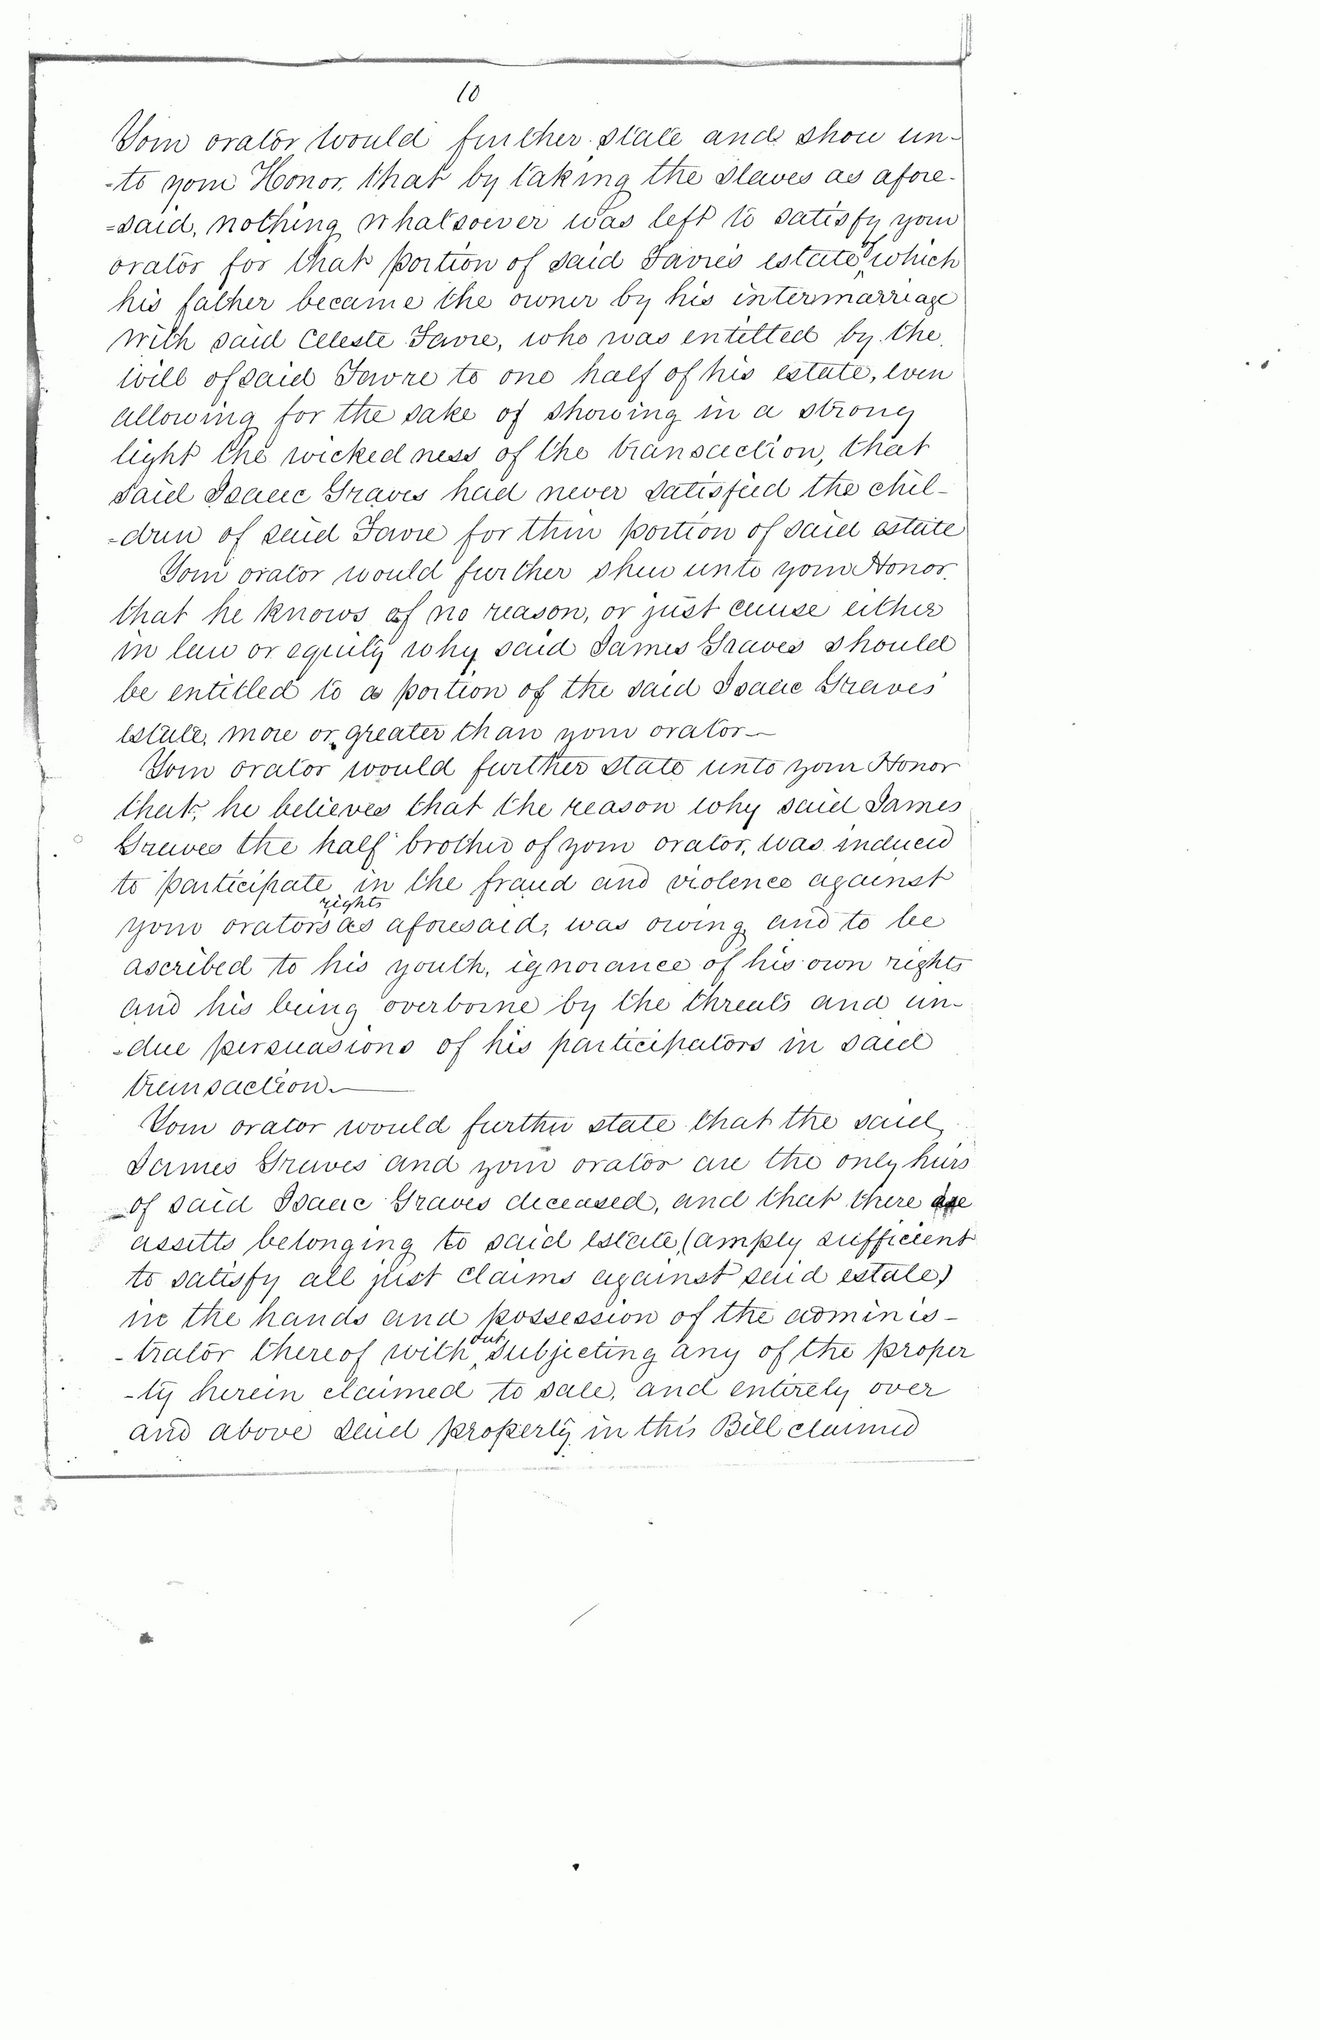 10
Your orator would further state and show un-
-to your Honor, that by taking the slaves as afore-
=said, nothing whatsoever was left to satisfy your
orator for that portion of said Favre's estate of which
his father became the owner by his intermarriage
with said Celeste Favre, who was entitled by the
will of said Favre to one half of his estate, even
allowing for the sake of showing in a strong
light the wickedness of the transaction, that
said Isaac Graves had never satisfied the chil-
-dren of said Favre for their portion of said estate
Your orator would further shew unto your Honor,
that he knows of no reason, or just cause either
in law or equity why said James Graves should
be entitled to a portion of the said Isaac Graves'
estate, more or greater than your orator—
Your orator would further state unto your Honor
that, he believes that the reason why said James
Graves the half brother of your orator, was induced
to participate in the fraud and violence against
your orators rights as aforesaid, was owing and to be
ascribed to his youth, ignorance of his own rights
and his being overborne by the threats and un-
-due persuasions of his participators in said
transaction.—
Your orator would further state that the said
James Graves and your orator are the only heirs
of said Isaac Graves deceased, and that there are
assetts belonging to said estate (amply sufficient
to satisfy all just claims against said estate)
in the hands and possession of the adminis-
-trator thereof without subjecting any of the proper
-ty herein claimed to sale, and entirely over
and above said property in this Bill claimed